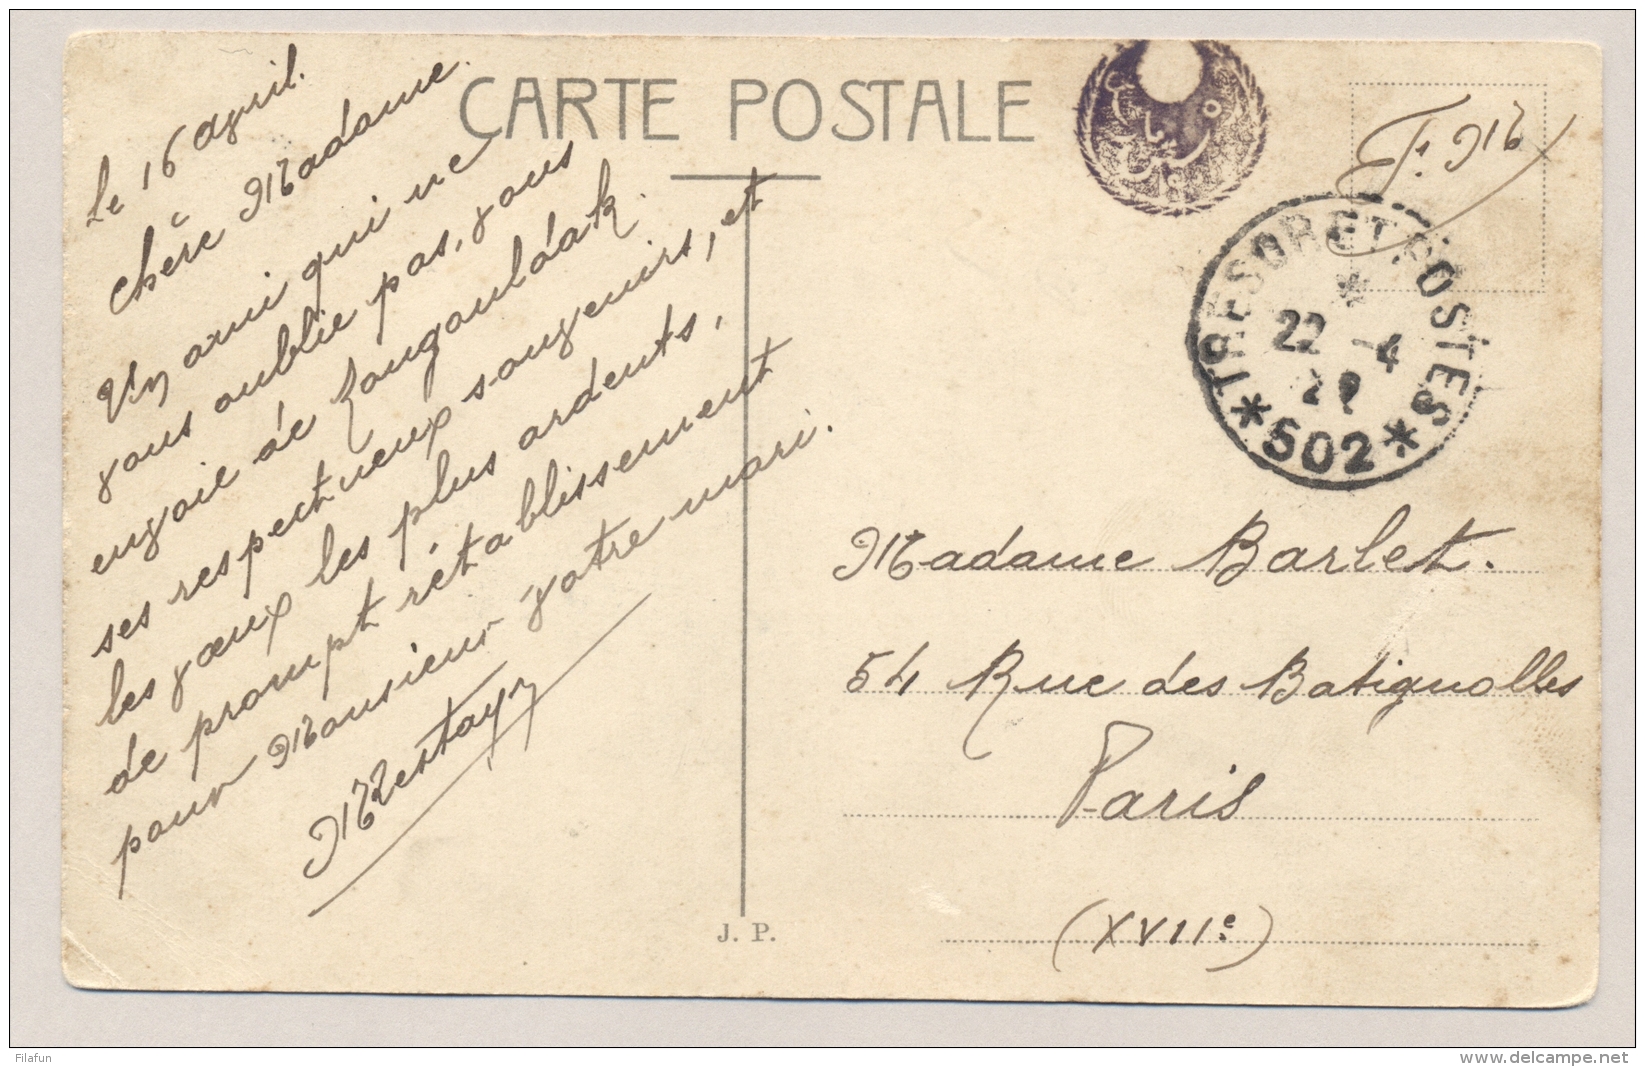 CARTE POSTALE
Le 16 avril.
Chère Madame.
Un ami qui ne
vous oublie pas, vous
envoie de Zougouldak.
ses respectueux souvenirs, et
les vœux les plus ardents,
de prompt rétablissement
pour Monsieur votre mari.
F. M
TRESOR ET POSTES
22 -4
22
*502*
Madame Barlet.
54 Rue des Batignolles
Paris
(XVIIe)
J. P.
Filafun
www.delcampe.net